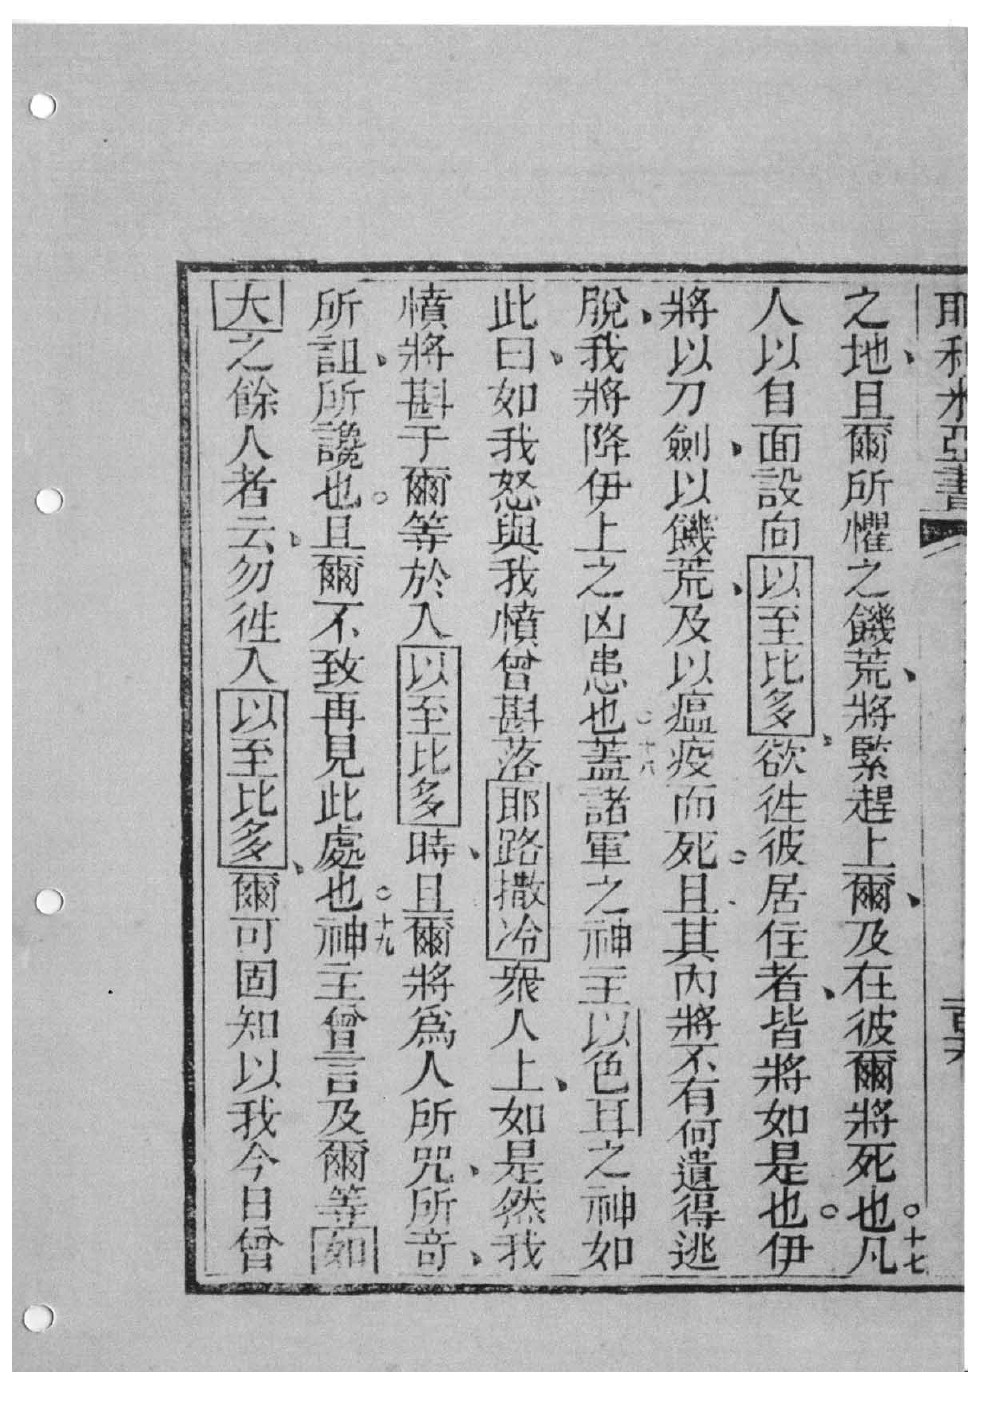 耶利米亞書
之地、且爾所懼之饑荒、將緊趕上爾、及在彼爾將死也。十七凡
人以自面設向以至比多、欲徃彼居住者、皆將如是也。伊
將以刀劍、以饑荒、及以瘟疫而死。且其內將不有何遺得逃
脫、我將降伊上之凶患也。十八蓋諸軍之神主以色耳之神如
此曰、如我怒與我憤曾斟落耶路撒冷衆人上、如是然我
憤將斟于爾等於入以至比多時、且爾將爲人所咒、所奇、
所詛、所讒也。且爾不致再見此處也。十九神主曾言及爾等如
大之餘人者云、勿徃入以至比多、爾可固知以我今日曾